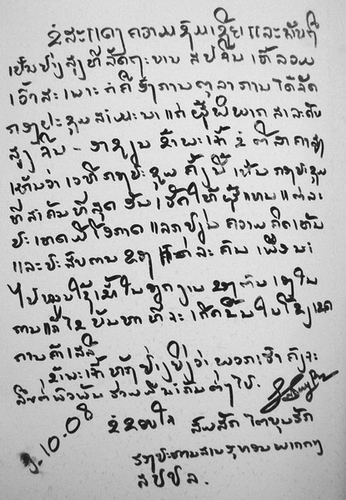 ຂໍສະແດງຄວາມຊົມເຊີຍ ແລະ ຍິນດີ
ເປັນຢ່າງສູງ ທີ່ລັດຖະບານ ສປ ຈີນ
ເວົ້າສະເພາະ ກໍຄື ອົງການຕຸລາການ ໄດ້ຈັດ
ກອງປະຊຸມ ສຳມະນາ ແກ່ ຜູ້ພິພາກສາລະດັບ
ສູງ ຈີນ - ອາຊຽນ ຂ້າພະເຈົ້າ ຂໍຕີລາຄາສູງ
ເຫັນວ່າ ເວທີ ກອງປະຊຸມ ຄັ້ງນີ້ ເປັນ ກອງປະຊຸມ
ທີ່ສຳຄັນທີ່ສຸດ ອັນເຮັດໃຫ້ ຜູ້ແທນແຕ່ລະ
ປະເທດ ມີໂອກາດ ແລກປ່ຽນ ຄວາມຄິດເຫັນ
ແລະ ປະສົບການ ຂອງ ແຕ່ລະ ຄົນ ເພື່ອນຳ
ໄປໝູນໃຊ້ເຂົ້າໃນວຽກງານ ຂອງຕົນ ເອງໃນ
ການແກ້ໄຂ ບັນຫາ ທີ່ຈະ ເກີດຂຶ້ນໃນໂຂງເຂດ
ການຄ້າເສລີ
ຂ້າພະເຈົ້າ ຫວັງຢ່າງຍິ່ງວ່າ ພວກເຮົາ ຄົງຈະ
ສືບຕໍ່ພົວພັນ ຮ່ວມມືນຳກັນຕໍ່ໄປ.
9.10.08
ຂໍຂອບໃຈ ສົມສັກ ໄຕບຸນຮັກ
ຮອງປະທານສານ
ສປປລ.